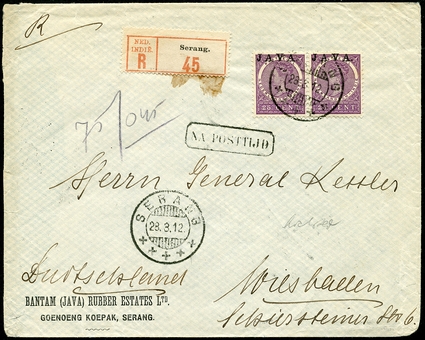 R
NED.
INDIË.
Serang.
R 45
JAVA JAVA
25 CENT. CENT.
NA POSTTIJD
Herrn General Kessler
SERANG
28.3.12
Deutschland
Wiesbaden
BANTAM (JAVA) RUBBER ESTATES LTD.
GOENOENG KOEPAK, SERANG.